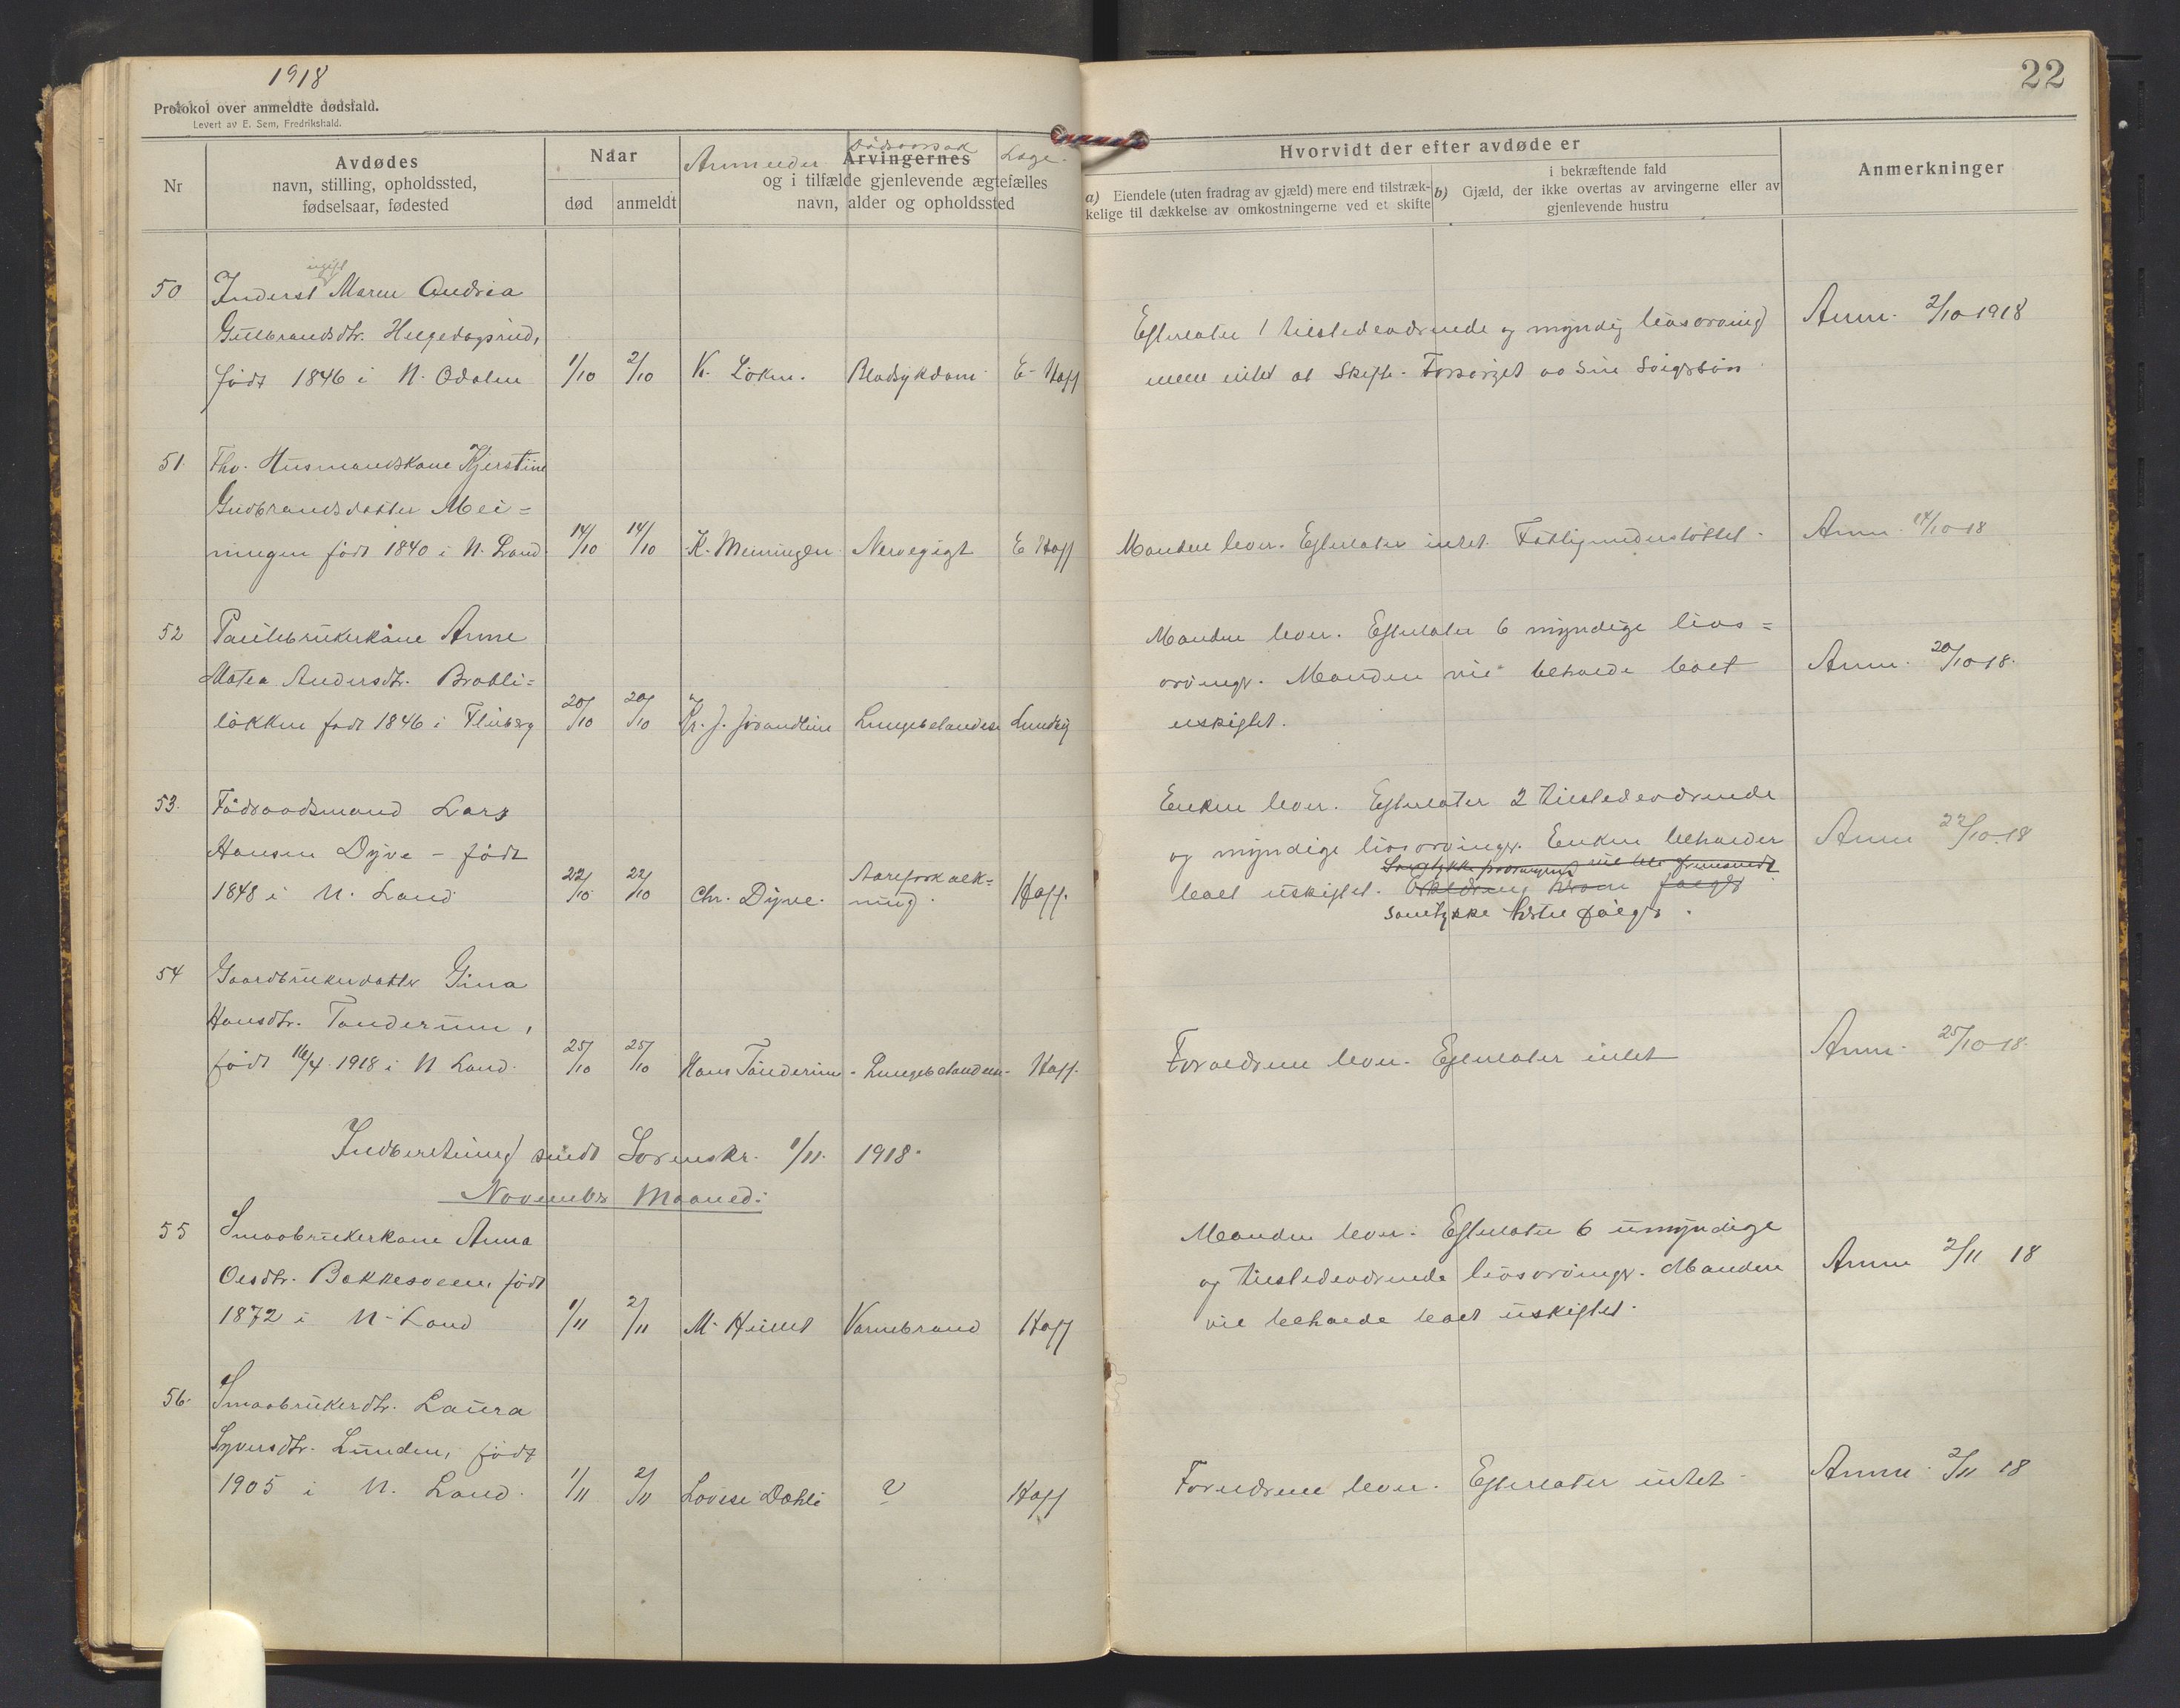 1918
22
Protokol over anmeldte dødsfald.
Levert av E. Sem, Fredrikshald.
Nr
Avdødes
navn, stilling, opholdssted,
fødselsaar, fødested
Naar
død
anmeldt
Anmelder Dødsaarsak Læge.
Arvingernes
og i tilfælde gjenlevende ægtefælles
navn, alder og opholdssted
Hvorvidt der efter avdøde er
a) Eiendele (uten fradrag av gjæld) mere end tilstræk-
kelige til dækkelse av omkostningerne ved et skifte
i bekræftende fald
b) Gjæld, der ikke overtas av arvingerne eller av
gjenlevende hustru
Anmerkninger
ugift
50 Inderst Maren Andrea
Gulbrandsdtr. Helgedagsrud,
født 1846 i N. Odalen 1/10 2/10 K. Løkne. Blodsykdom E. Hoff
Efterlater 1 tilstedeværende og myndig livsarving
men intet at skifte. Forsørget av sin Svigersøn
Anm. 2/10 1918
51. Fhv. Husmandskone Kjerstine
Gudbrandsdatter Mei=
ningen født 1840 i N. Land 14/10 14/10 K. Meiningen Nervegigt E Hoff
Manden lever. Efterlater intet. Fattigunderstøttet.
Anm. 14/10-18
52 Partebrukerkone Anne
Matea Andersdtr. Brattli=
løkken født 1846 i Fluberg 20/10 20/10 Kr. J. Lungebetændelse Lundby
Manden lever. Efterlater 6 myndige livs=
arvinger. Manden vil beholde boet
uskiftet.
Anm. 20/10-18.
53. Føderaadsmand Lars
Hansen Dyve - født
1848 i N. Land 22/10 22/10 Chr. Dyve. Aareforkalk=
ning. Hoff.
Enken lever. Efterlater 2 tilstedeværende
og myndige livsarvinger. Enken beholder
boet uskiftet. følges
samtykke følger.
Anm 22/10-18
54 Gaardbrukerdatter Gina
Hansdtr. Tanderum,
født 16/4 1918 i N. Land. 25/10 25/10 Hans Tanderum. Lungebetændelse. Hoff.
Forældrene lever. Efterlater intet
Anm. 25/10-18.
Indberetning sendt Sorenskr. 1/11. 1918.
November Maaned:
55 Smaabrukerkone Anna
Olsdtr. Bakkesveen, født
1872 i N. Land 1/11 2/11 M. Hullet Varmebrand Hoff
Manden lever. Efterlater 6 umyndige
og tilstedeværende livsarvinger. Manden
vil beholde boet uskiftet.
Anm 2/11 18
56. Smaabrukerdtr. Laura
Syversdtr. Lunden, født
1905 i N. Land. 1/11 2/11 Lovise Dæhli ? Hoff
Forældrene lever. Efterlater intet.
Anm. 2/11 18